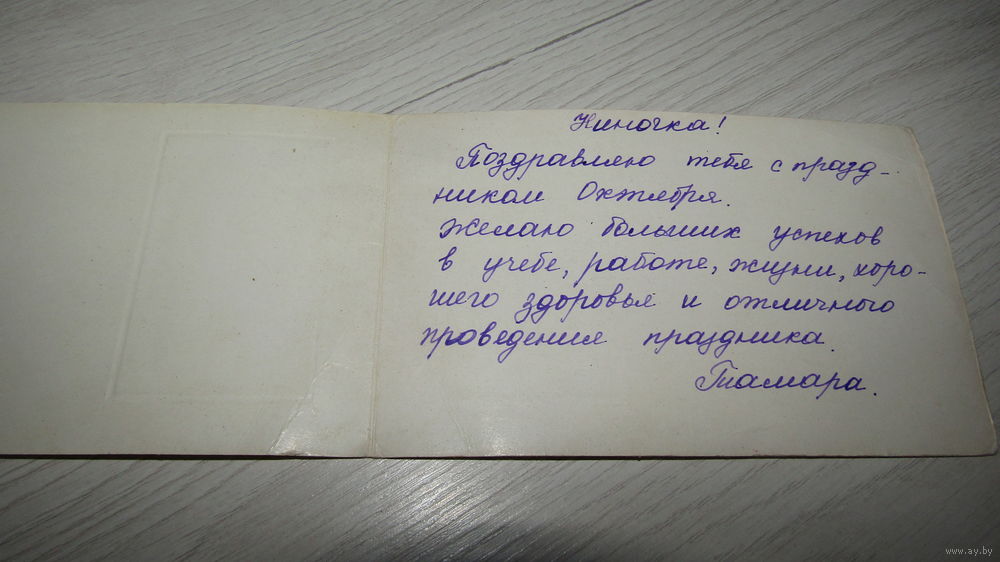 Ниночка!
Поздравляю тебя с празд-
ником Октября.
Желаю больших успехов
в учебе, работе, жизни, хоро-
шего здоровья и отличного
проведения праздника.
Тамара.
www.ay.by